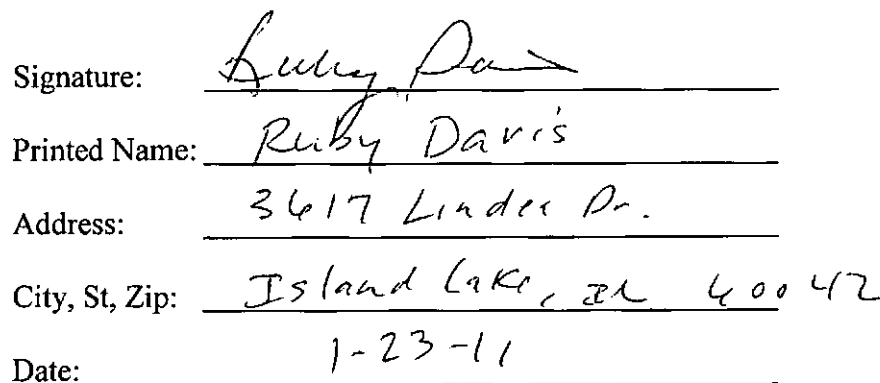 Signature: Ruby Davis
Printed Name: Ruby Davis
Address: 3617 Linden Dr.
City, St, Zip: Island Lake, IL 60042
Date: 1-23-11